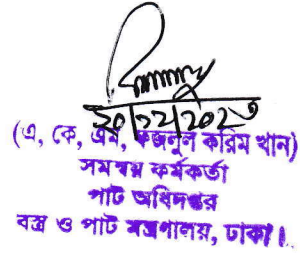 ২০/১২/২০২৩
(এ, কে, এম, ফজলুল করিম খান)
সমন্বয় কর্মকর্তা
পাট অধিদপ্তর
বস্ত্র ও পাট মন্ত্রণালয়, ঢাকা।